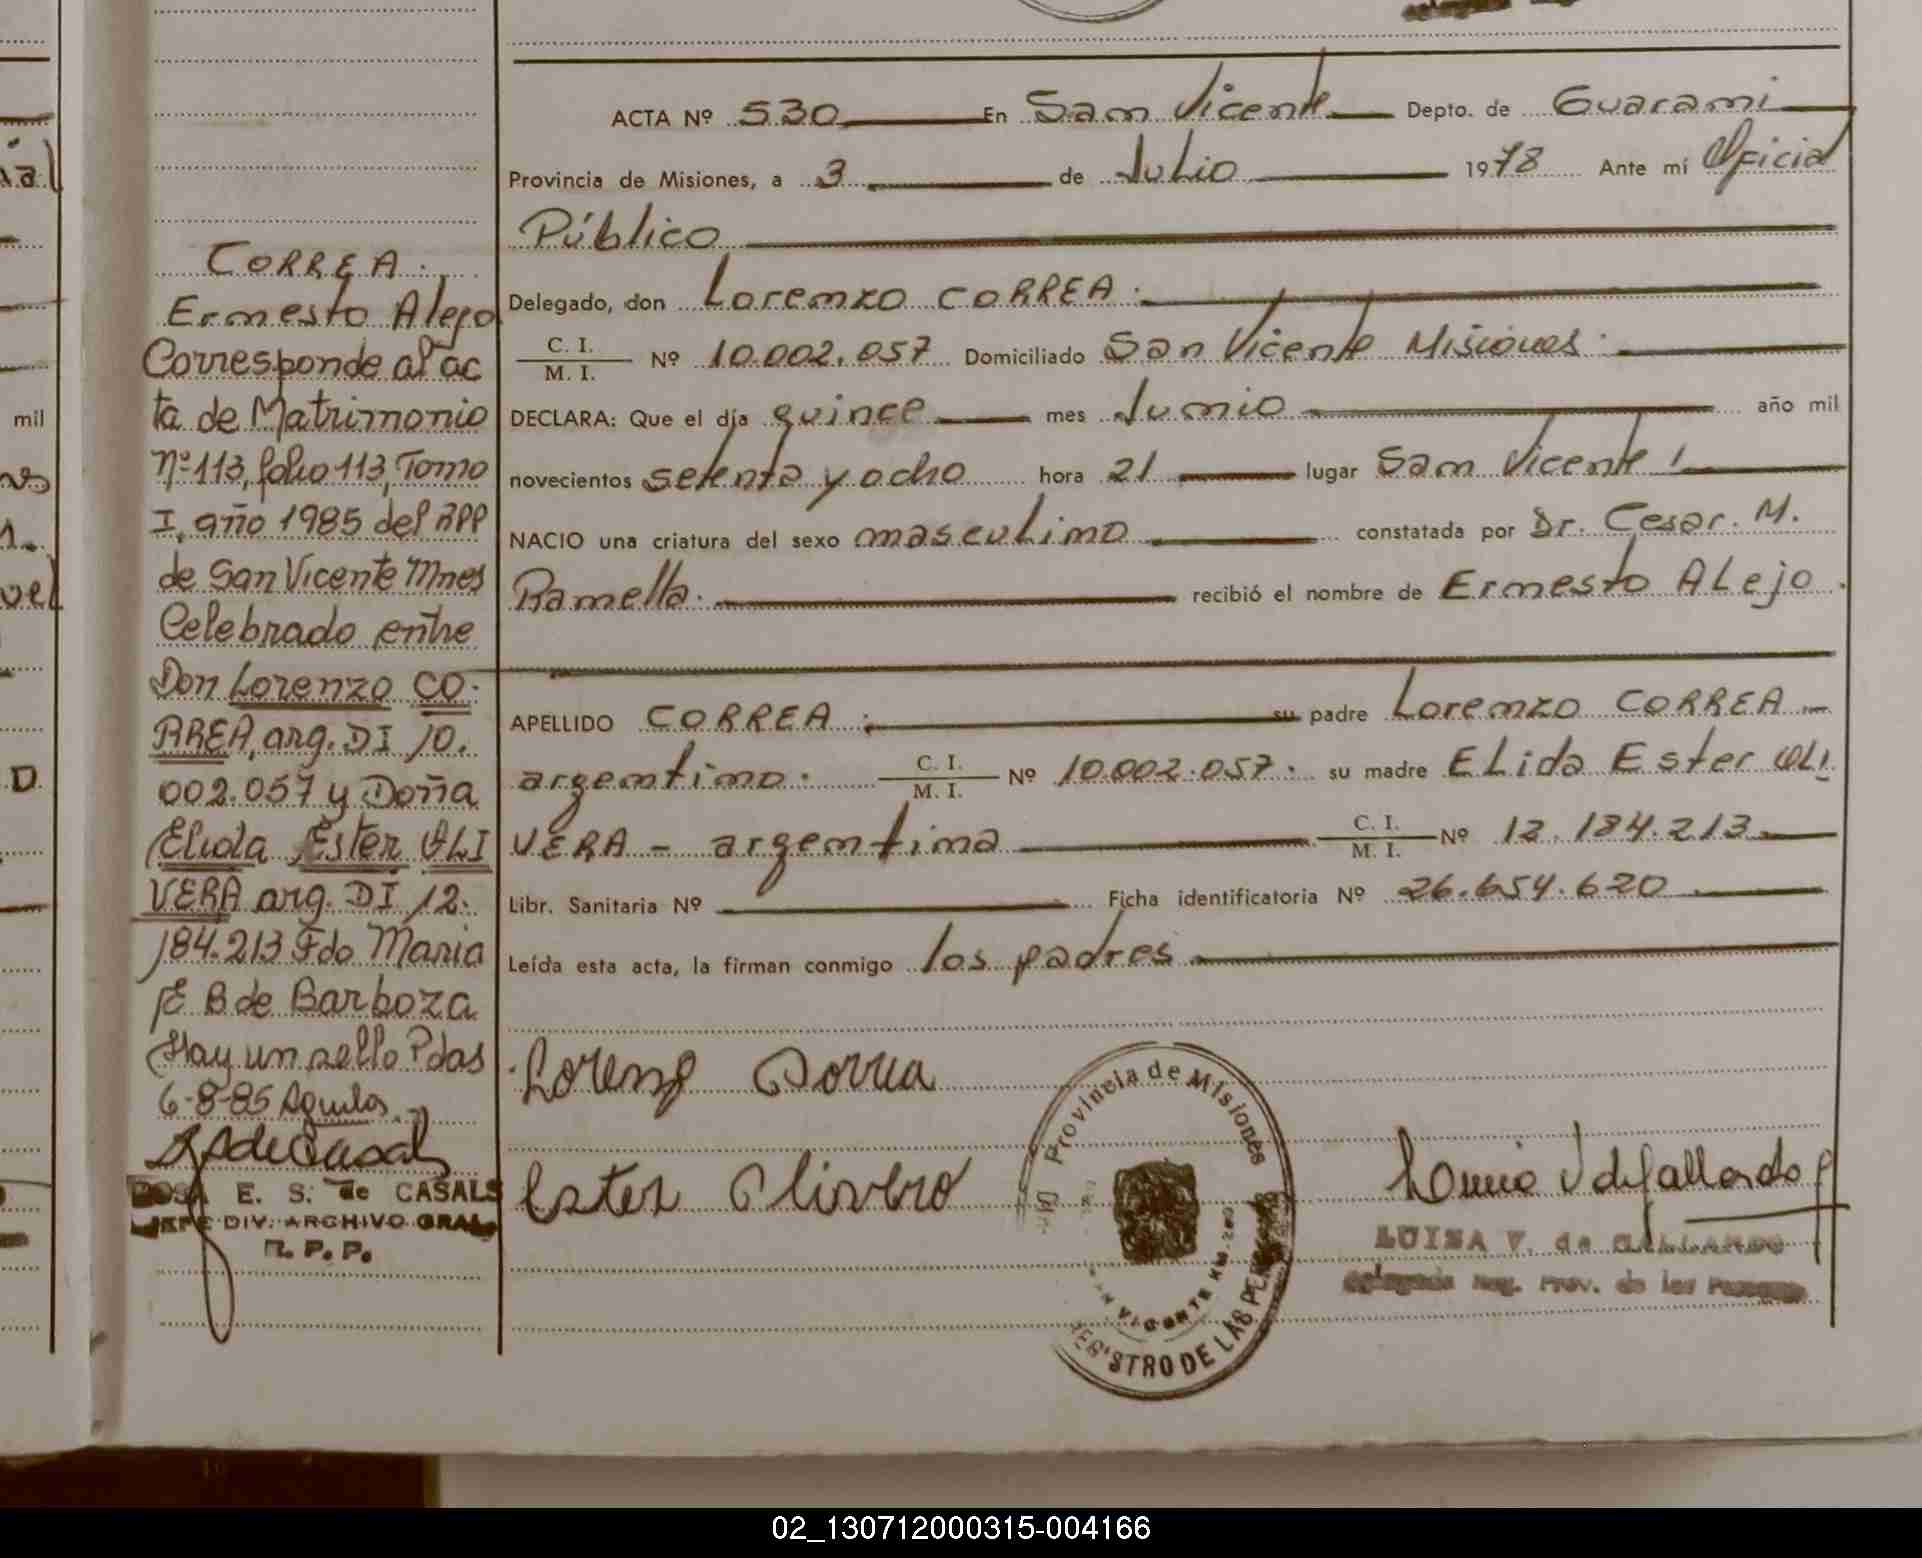 CORREA.
Ernesto Alejo
Corresponde al ac
ta de Matrimonio
Nº 113, folio 113, Tomo
I, año 1985 del RPP
de San Vicente Mnes
Celebrado entre
Don Lorenzo CO-
RREA, arg. DI 10.
002.057 y Doña
Elida Ester OLI
VERA arg. DI 12.
184.213 Fdo Maria
E B de Barboza
Hay un sello Pdas
6-8-85
E. S. de CASALS
JEFE DIV. ARCHIVO GRAL.
R. P. P.
mil
ACTA Nº 530 En San Vicente Depto. de Guarani
Provincia de Misiones, a 3 de Julio 1978 Ante mí Oficial
Público
Delegado, don Lorenzo CORREA.
C. I.
M. I. Nº 10.002.057 Domiciliado San Vicente Misiones.
DECLARA: Que el día quince mes Junio año mil
novecientos setenta y ocho hora 21 lugar San Vicente
NACIO una criatura del sexo masculino constatada por Dr. Cesar. M.
Ramella. recibió el nombre de Ernesto ALejo.
APELLIDO CORREA su padre Lorenzo CORREA
argentino. C. I.
M. I. Nº 10.002.057. su madre ELida Ester OLI
VERA - argentina C. I.
M. I. Nº 12.184.213
Libr. Sanitaria Nº Ficha identificatoria Nº 26.654.620
Leída esta acta, la firman conmigo los padres
Ester
Provincia de Misiones
SAN VICENTE
REGISTRO DE LAS PERSONAS
LUISA V. de GALLARDO
Delegada Reg. Prov. de las Personas
02_130712000315-004166